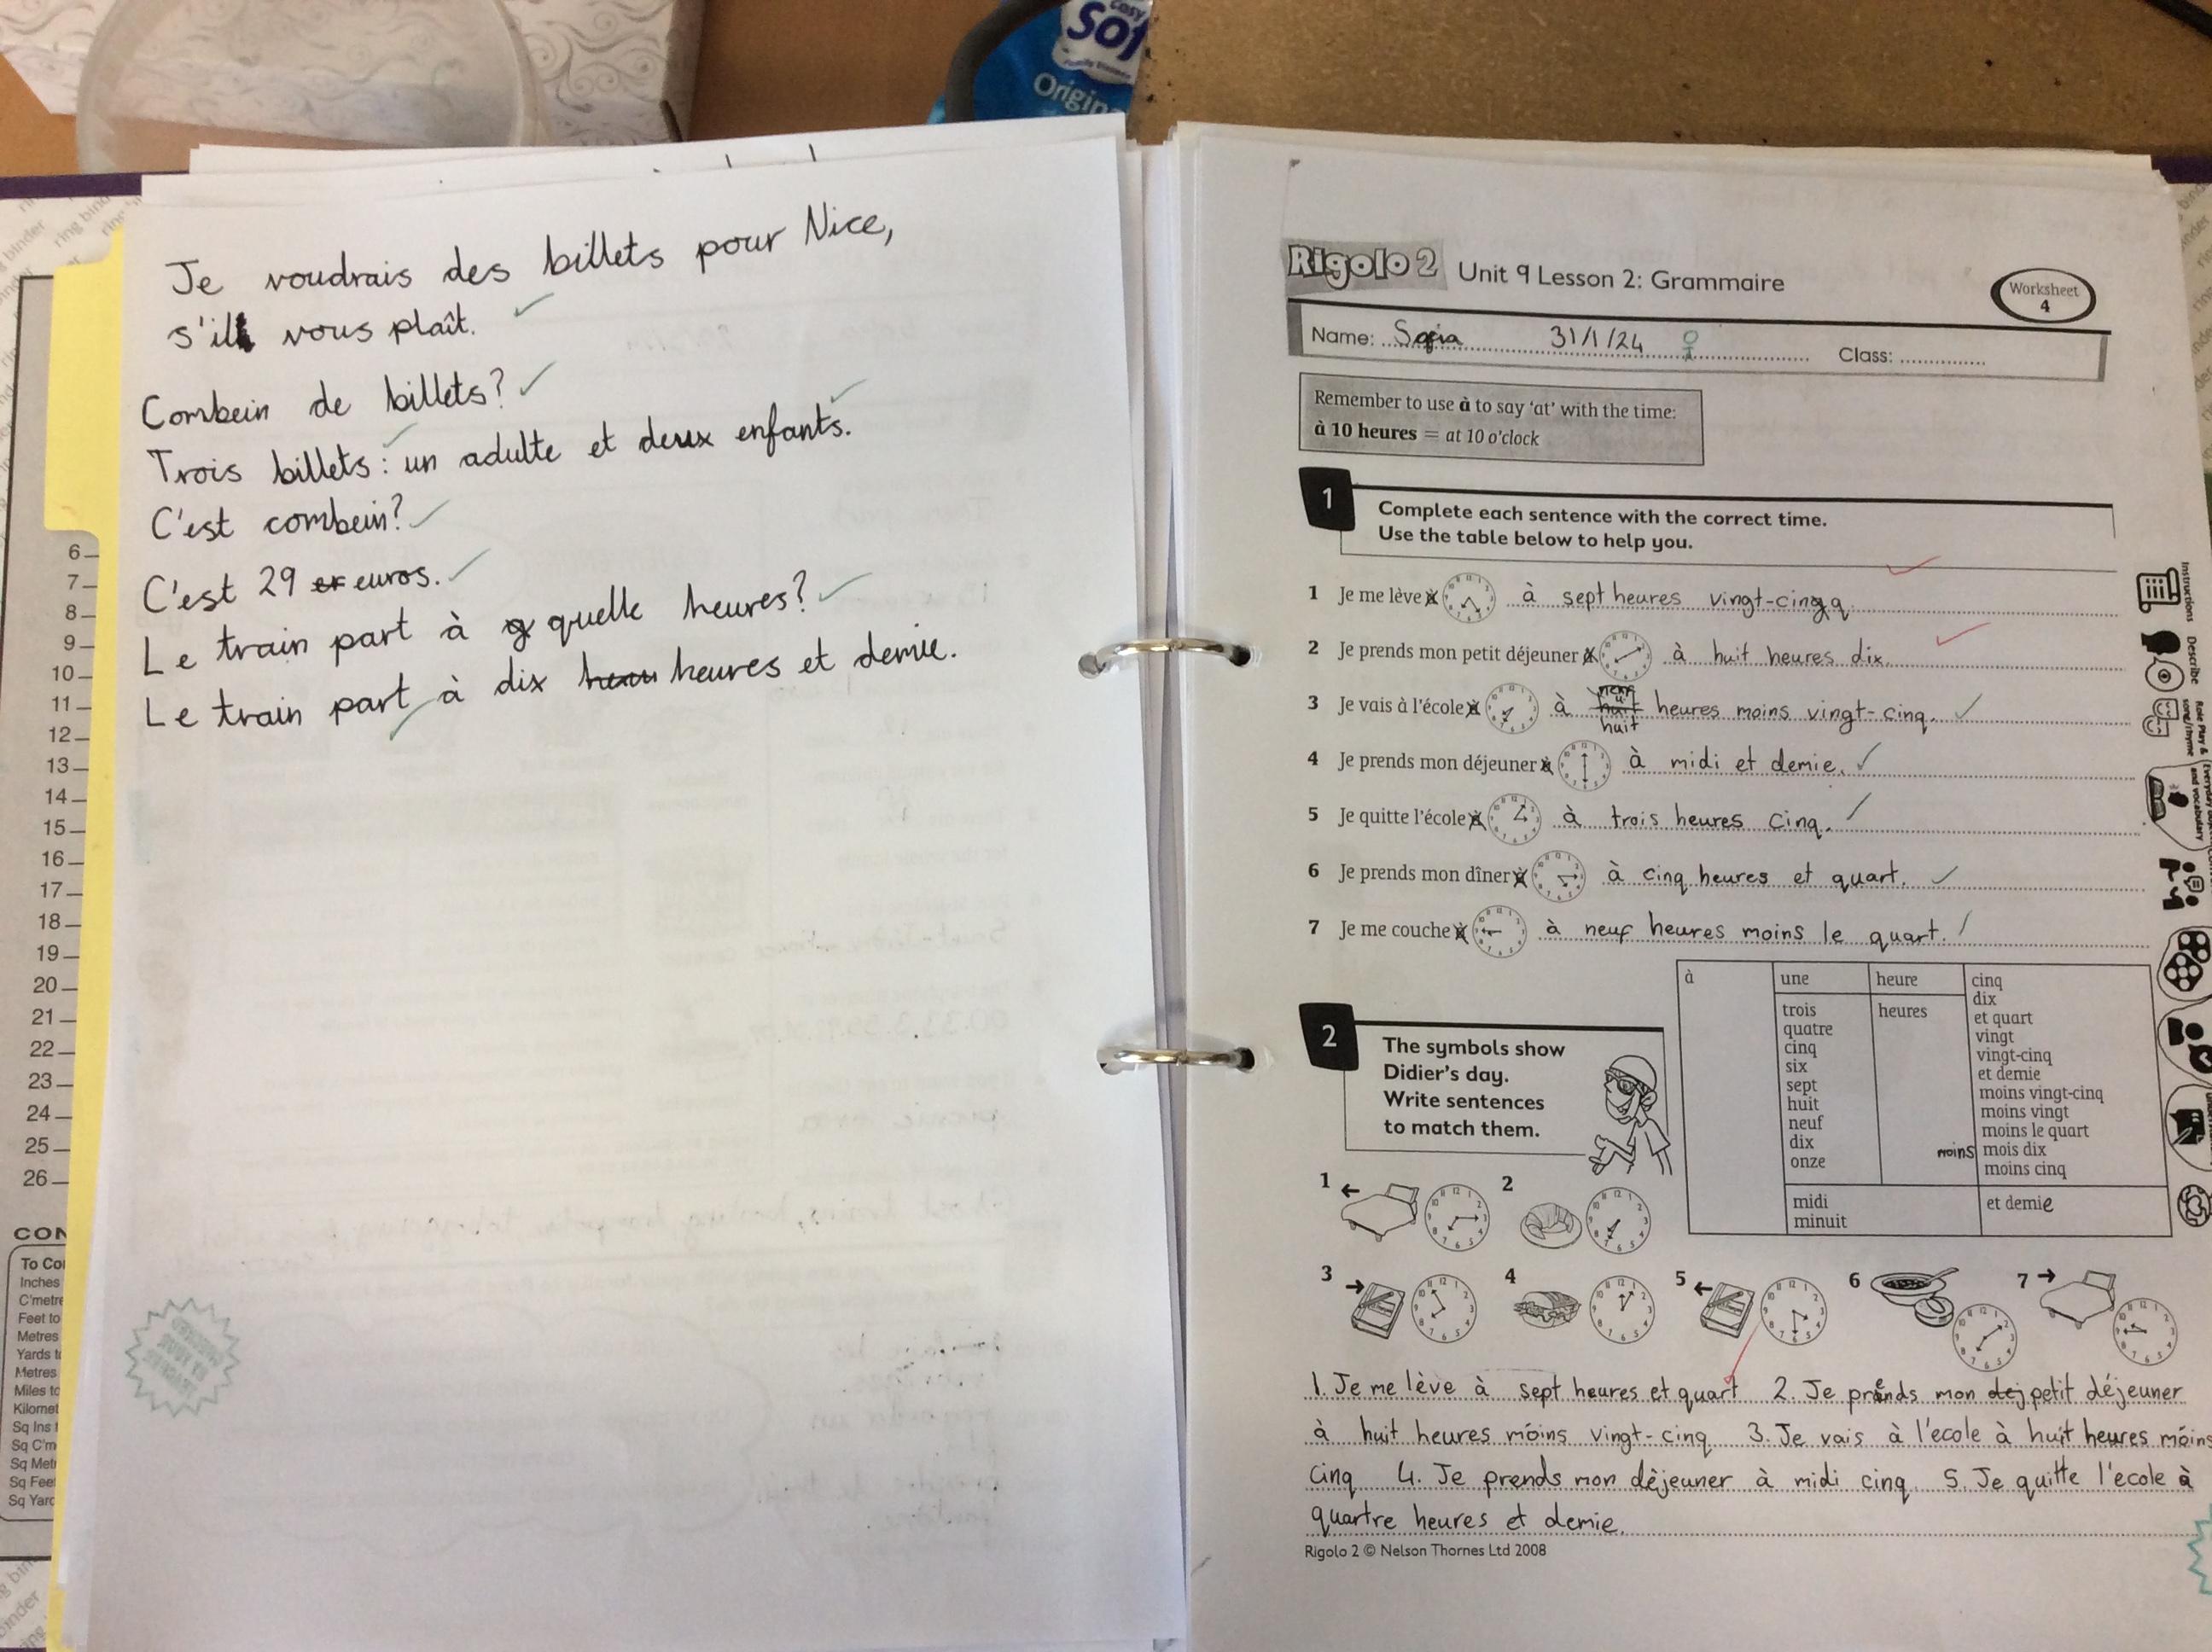 cosy
SOf
Family Tissues
Origin
ring binder
Je voudrais des billets pour Nice,
s'il vous plaît.
Combein de billets?
Trois billets: un adulte et deux enfants.
C'est combein?
C'est 29 er euros.
Le train part à quelle heures?
Le train part à dix heu heures et demie.
6
7
8
9
10
11
12
13
14
15
16
17
18
19
20
21
22
23
24
25
26
CON
To Co
Inches
C'metre
Feet to
Metres
Yards to
Metres
Miles to
Kilomet
Sq Ins t
Sq C'm
Sq Met
Sq Fee
Sq Yard
Rigolo 2 Unit 9 Lesson 2: Grammaire
Worksheet
4
Name: Sofia 31/1/24 Class:
Remember to use à to say 'at' with the time:
à 10 heures = at 10 o'clock
1 Complete each sentence with the correct time.
Use the table below to help you.
1 Je me lève à à sept heures vingt-cinq
2 Je prends mon petit déjeuner à à huit heures dix.
3 Je vais à l'école à à huit heures moins vingt-cinq.
4 Je prends mon déjeuner à à midi et demie.
5 Je quitte l'école à à trois heures cinq.
6 Je prends mon dîner à à cinq heures et quart.
7 Je me couche à à neuf heures moins le quart.
à une heure cinq
dix
trois heures et quart
quatre vingt
cinq vingt-cinq
six et demie
sept moins vingt-cinq
huit moins vingt
neuf moins le quart
dix moins mois dix
onze moins cinq
midi et demie
minuit
2 The symbols show
Didier's day.
Write sentences
to match them.
1
2
3
4
5
6
7
1. Je me lève à sept heures et quart 2. Je prends mon dej petit déjeuner
à huit heures móins vingt-cinq 3. Je vais à l'ecole à huit heures móins
cinq 4. Je prends mon dèjeuner à midi cinq 5. Je quitte l'ecole à
quartre heures et demie.
Rigolo 2 © Nelson Thornes Ltd 2008
Instructions
Describe
Role Play &
song/rhyme
and vocabulary